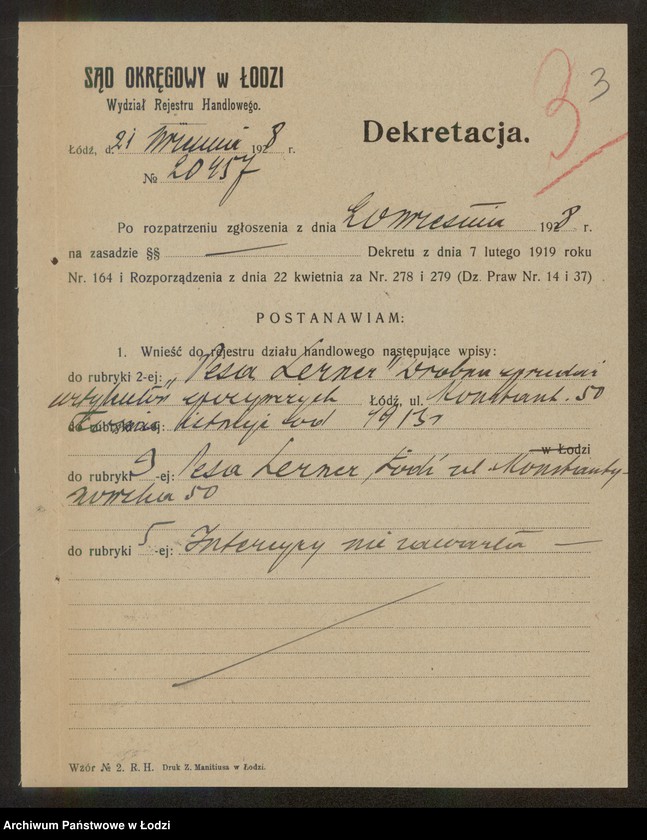 3 3
SĄD OKRĘGOWY w ŁODZI
Wydział Rejestru Handlowego.
Dekretacja.
Łódź, d. 21 września 1928 r.
№ 20457
Po rozpatrzeniu zgłoszenia z dnia 20 września 1928 r.
na zasadzie §§ — Dekretu z dnia 7 lutego 1919 roku
Nr. 164 i Rozporządzenia z dnia 22 kwietnia za Nr. 278 i 279 (Dz. Praw Nr. 14 i 37)
POSTANAWIAM:
1. Wnieść do rejestru działu handlowego następujące wpisy:
do rubryki 2-ej: „Pesa Lerner" Drobna sprzedaż
artykułów spożywczych Łódź, ul. Konstant. 50
Firma istnieje od
w Łodzi
do rubryki 3-ej: Pesa Lerner, Łódź ul. Konstanty-
nowska 50
do rubryki 5-ej: Intercyzy nie zawarła —
Wzór № 2. R. H. Druk Z. Manitiusa w Łodzi.
Archiwum Państwowe w Łodzi